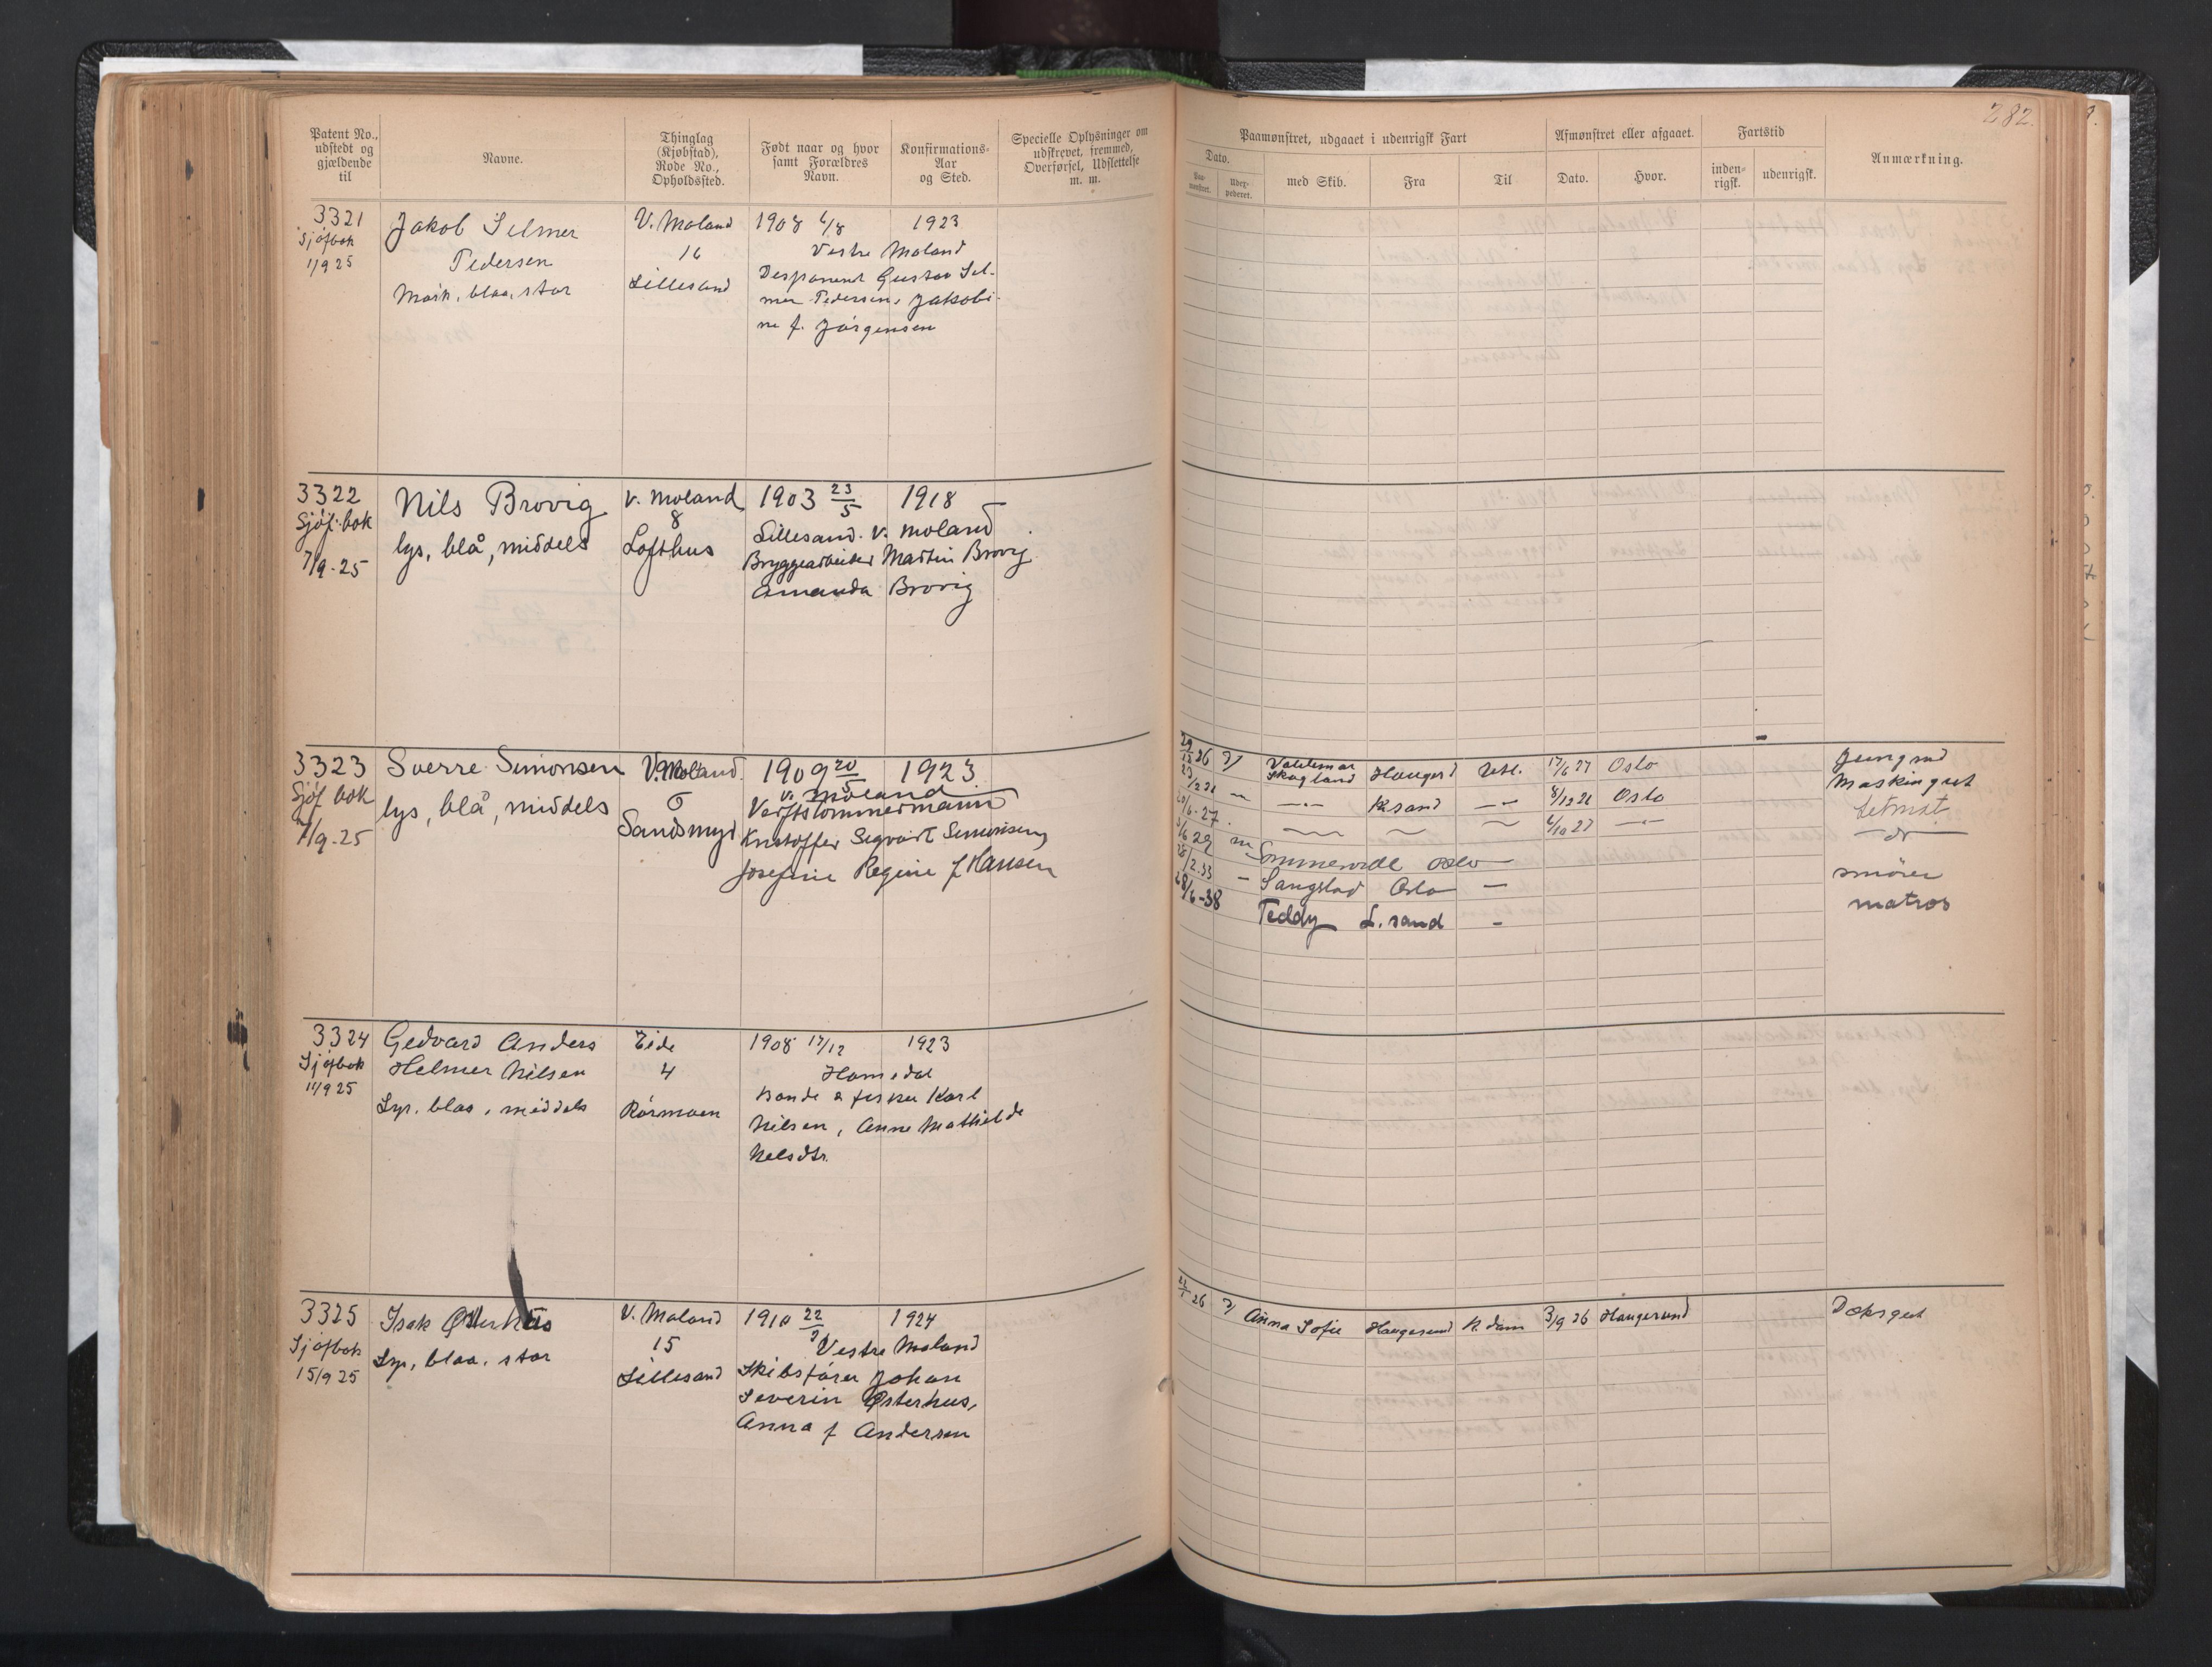 282.
Patent No., udstedt og gjældende til
Navne.
Thinglag (Kjøbstad), Rode No., Opholdssted.
Født naar og hvor samt Forældres Navn.
Konfirmations-Aar og Sted.
Specielle Oplysninger om udskrevet, fremmed, Overførsel, Udslettelse m. m.
Paamønstret, udgaaet i udenrigsk Fart
Dato.
Paa-mønstret.
med Skib.
Fra
Til
Afmønstret eller afgaaet.
Dato.
Hvor.
Fartstid
inden-rigsk.
udenrigsk.
Anmærkning.
3321 Jakob Selmer V. Moland 1908 6/8 1923
Sjøfbok Pedersen 16 Vestre Moland
1/9 25 Mørk, blaa, stor Lillesand Disponent Gustav Sel-
mer Pedersen, Jakobi-
ne f. Jørgensen
3322 Nils Brovig V. Moland 1903 23/5 1918
Sjøf. bok lys, blå, middels 8 Lillesand. V. Moland
7/9-25 Lofthus Bryggearbeider Martin Brovig
Amanda Brovig
3323 Sverre Simonsen V. Moland 1909 20/5 1923
Sjøf bok lys, blå, middels 6 V. Moland
7/9-25 Sandsmyr Verftstømmermann
Kristoffer Sigvart Simonsen,
Josefine Regine f Hansen
Valdemar Skogland Haugesd Utl. 17/6 27 Oslo Jungmd
K.sand 8/12 26 Oslo Maskingut
20/6-27 Letmat
Sommerville Oslo — do —
Sangstad Oslo — smører
28/6-38 Teddy L. sand - matros
3324 Gedvard Anders Eide 1908 17/12 1923
Sjøfbok Helmer Nilsen 4 Homedal
11/9 25 Lys, blaa, middels Rørmoen Bonde & fisker Karl
Nilsen, Anne Mathilde
Nelsdtr.
3325 Isak Østerhus V. Moland 1910 22 1924
Sjøfbok Lys, blaa, stor 15 Vestre Moland
15/9 25 Lillesand Skibsfører Johan
Severin Østerhus,
Anna f Andersen
26 Anna Sofie Haugesund R.dam 3/9 26 Haugesund Dæksgut